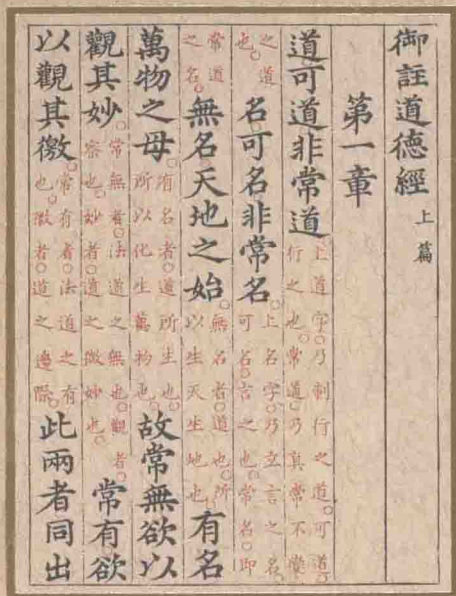 御註道德經 上篇
第一章
道可道非常道。上道字。乃制行之道。可道。行之也。常道。乃真常不變
之道也。名可名。非常名。上名字。乃立言之名。可名。言之也。常名。即
常道之名。無名天地之始。無名者。道也。所以生天生地也 有名
萬物之母。有名者。道所生也。所以化生萬物也。故常無欲以
觀其妙。常無者。法道之無也。觀者。察也。妙者。道之微妙也。常有。欲
以觀其徼。常有者。法道之有也。徼者。道之邊際。此兩者同出